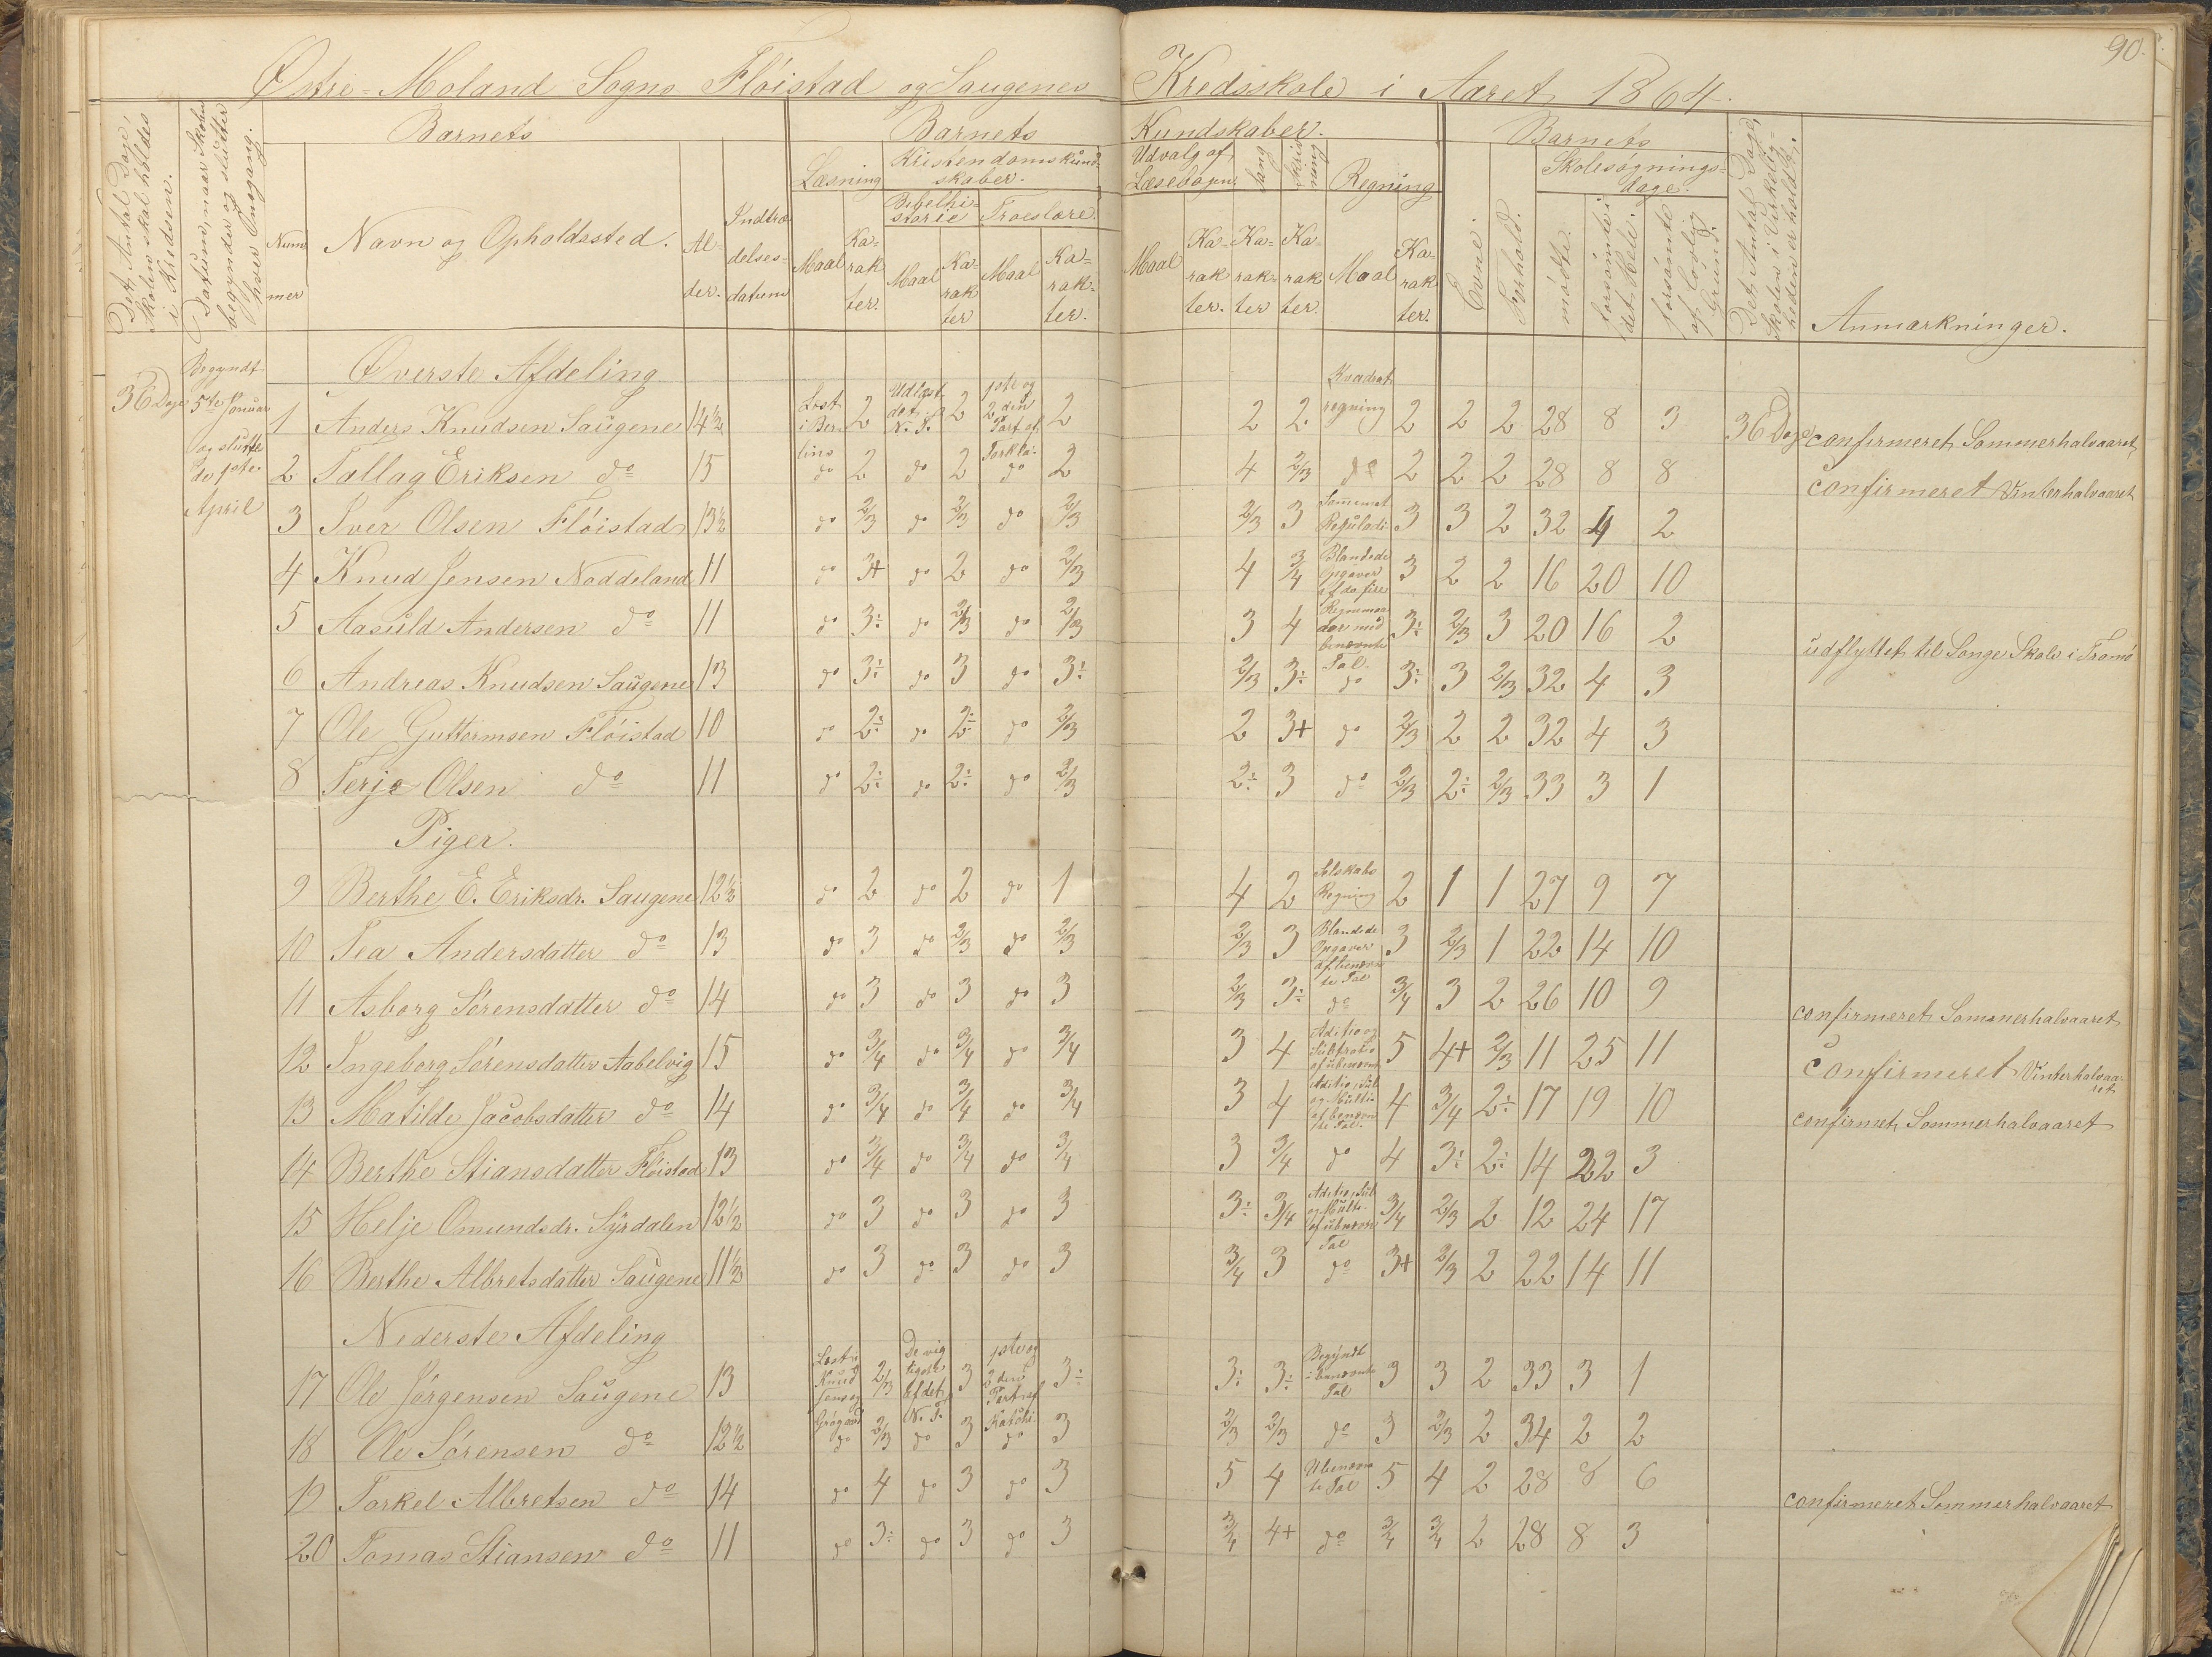 90.
Østre-Moland Sogns Flöistad og Saugenes Kredsskole i Aaret 1864.
Det Antal Dage, Skolen skal holdes i Kredsen.
Datum, naar Skolen begynder og slutter hver Omgang.
Barnets
Nummer
Navn og Opholdssted.
Alder.
Indtrædelsesdatum
Barnets Kundskaber.
Læsning
Kristendomskundskaber.
Bibelhistorie
Troeslære.
Udvalg af Læsebogen.
Sang
Skrivning
Regning
Maal Karakter. Maal Karakter Maal Karakter. Maal Karakter. Karakter Karakter. Maal Karakter.
Barnets
Evne.
Forhold.
Skolesøgningsdage.
mødte.
forsömte i det Hele.
forsömte af lovlig Grund.
Det Antal Dage, Skolen i Virkeligheden er holdt.
Anmærkninger.
36 Dage
Begyndt 5te Januar og sluttede 1ste April
Øverste Afdeling
1 Anders Knudsen Saugene 14½ Læst i Berlins 2 Udlæst det N. T. 2 1ste og 2den Part af Forkla. 2 2 2 Kvadratregning 2 2 2 28 8 3 36 Dage confirmeret Sommerhalvaaret
2 Tallag Eriksen do 15 do 2 do 2 do 2 4 2/3 do 2 2 2 28 8 8 confirmeret Vinterhalvaaret
3 Iver Olsen Flöistad 13½ do 2/3 do 2/3 do 2/3 2/3 3 Sammensat Reguladi 3 3 2 32 4 2
4 Knud Jensen Noddeland 11 do 3+ do 2 do 2/3 4 3/4 Blandede Opgaver af de fire 3 2 2 16 20 10
5 Aasuld Andersen do 11 do 3÷ do 2/3 do 2/3 3 4 Regnemaader med benævnte Tal. 3÷ 2/3 3 20 16 2 udflyttet til Songe Skole i Tromö
6 Andreas Knudsen Saugene 13 do 3÷ do 3 do 3÷ 2/3 3÷ do 3÷ 3 2/3 32 4 3
7 Ole Guttormsen Flöistad 10 do 2÷ do 2÷ do 2/3 2 3+ do 2/3 2 2 32 4 3
8 Terje Olsen do 11 do 2÷ do 2÷ do 2/3 2÷ 3 do 2/3 2÷ 2/3 33 3 1
Piger.
9 Berthe E. Eriksdr. Saugene 12½ do 2 do 2 do 1 4 2 Selskabs Regning 2 1 1 27 9 7
10 Tea Andersdatter do 13 do 3 do 2/3 do 2/3 2/3 3 Blandede Opgaver af benævnte Tal 3 2/3 1 22 14 10
11 Asborg Sörensdatter do 14 do 3 do 3 do 3 2/3 3÷ do 3/4 3 2 26 10 9 confirmeret Sommerhalvaaret
12 Ingeborg Sörensdatter Aabelvig 15 do 3/4 do 3/4 do 3/4 3 4 Aditio og Subtratio af ubenævn 5 4+ 2/3 11 25 11 Confirmeret Vinterhalvaaret
13 Matilde Jacobsdatter do 14 do 3/4 do 3/4 do 3/4 3 4 Aditio, Sub og Multi af benævnte Tal. 4 3/4 2÷ 17 19 10 confirmet Sommerhalvaaret
14 Berthe Stiansdatter Flöistad 13 do 3/4 do 3/4 do 3/4 3 3/4 do 4 3÷ 2÷ 14 22 3
15 Helje Omundsdr. Syrdalen 12½ do 3 do 3 do 3 3÷ 3/4 Aditio, Sub og Multi. af ubenævn Tal 3/4 2/3 2 12 24 17
16 Berthe Albretsdatter Saugene 11½ do 3 do 3 do 3 3/4 3 do 3+ 2/3 2 22 14 11
Nederste Afdeling
17 Ole Jörgensen Saugene 13 Læst i Knud Jens og Grögaard 2/3 De vigtigste af det N. T. 3 1ste og 2den Part af Katchi. 3÷ 3÷ 3÷ Begyndt i benævnte Tal 3 3 2 33 3 1
18 Ole Sörensen do 12½ do 2/3 do 3 do 3 2/3 2/3 do 3 2/3 2 34 2 2
19 Torkel Albretsen do 14 do 4 do 3 do 3 5 4 Ubenævnte Tal 5 4 2 28 8 6 confirmeret Sommerhalvaaret
20 Tomas Stiansen do 11 do 3÷ do 3 do 3 3/4 4+ do 3/4 3/4 2 28 8 3